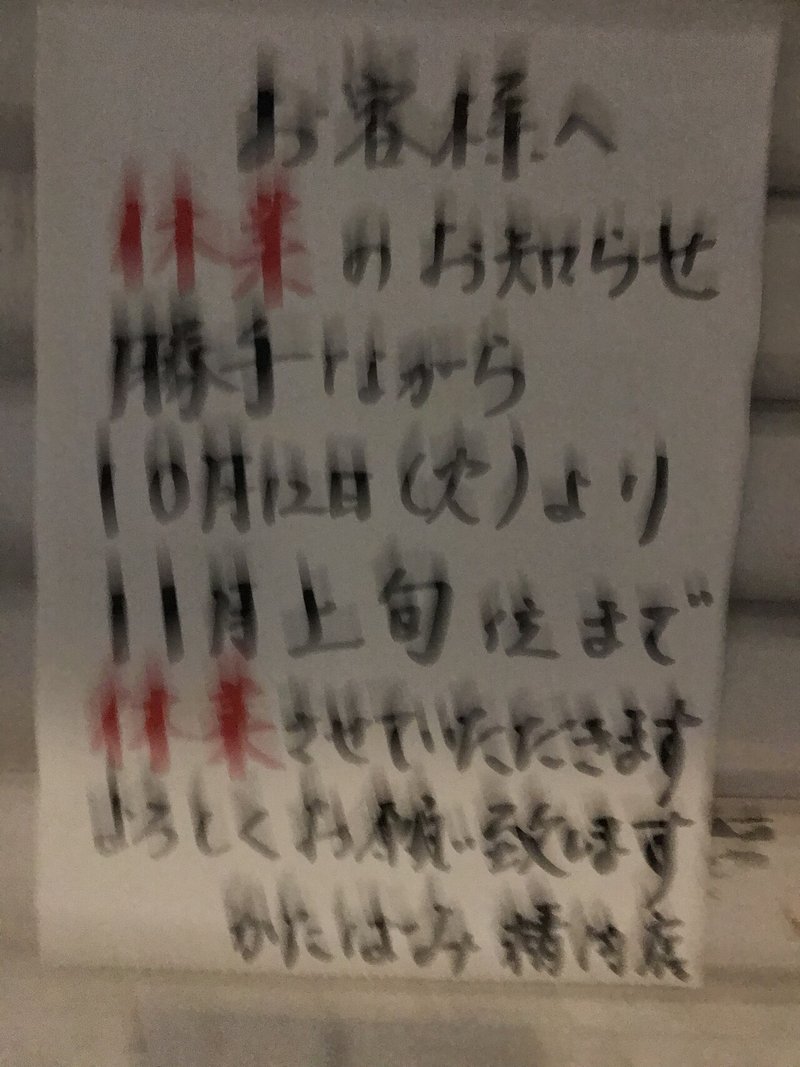 お客様へ
休業のお知らせ
勝手ながら
10月12日(火)より
11月上旬位まで
休業させていただきます
よろしくお願い致します
かたばみ精肉店